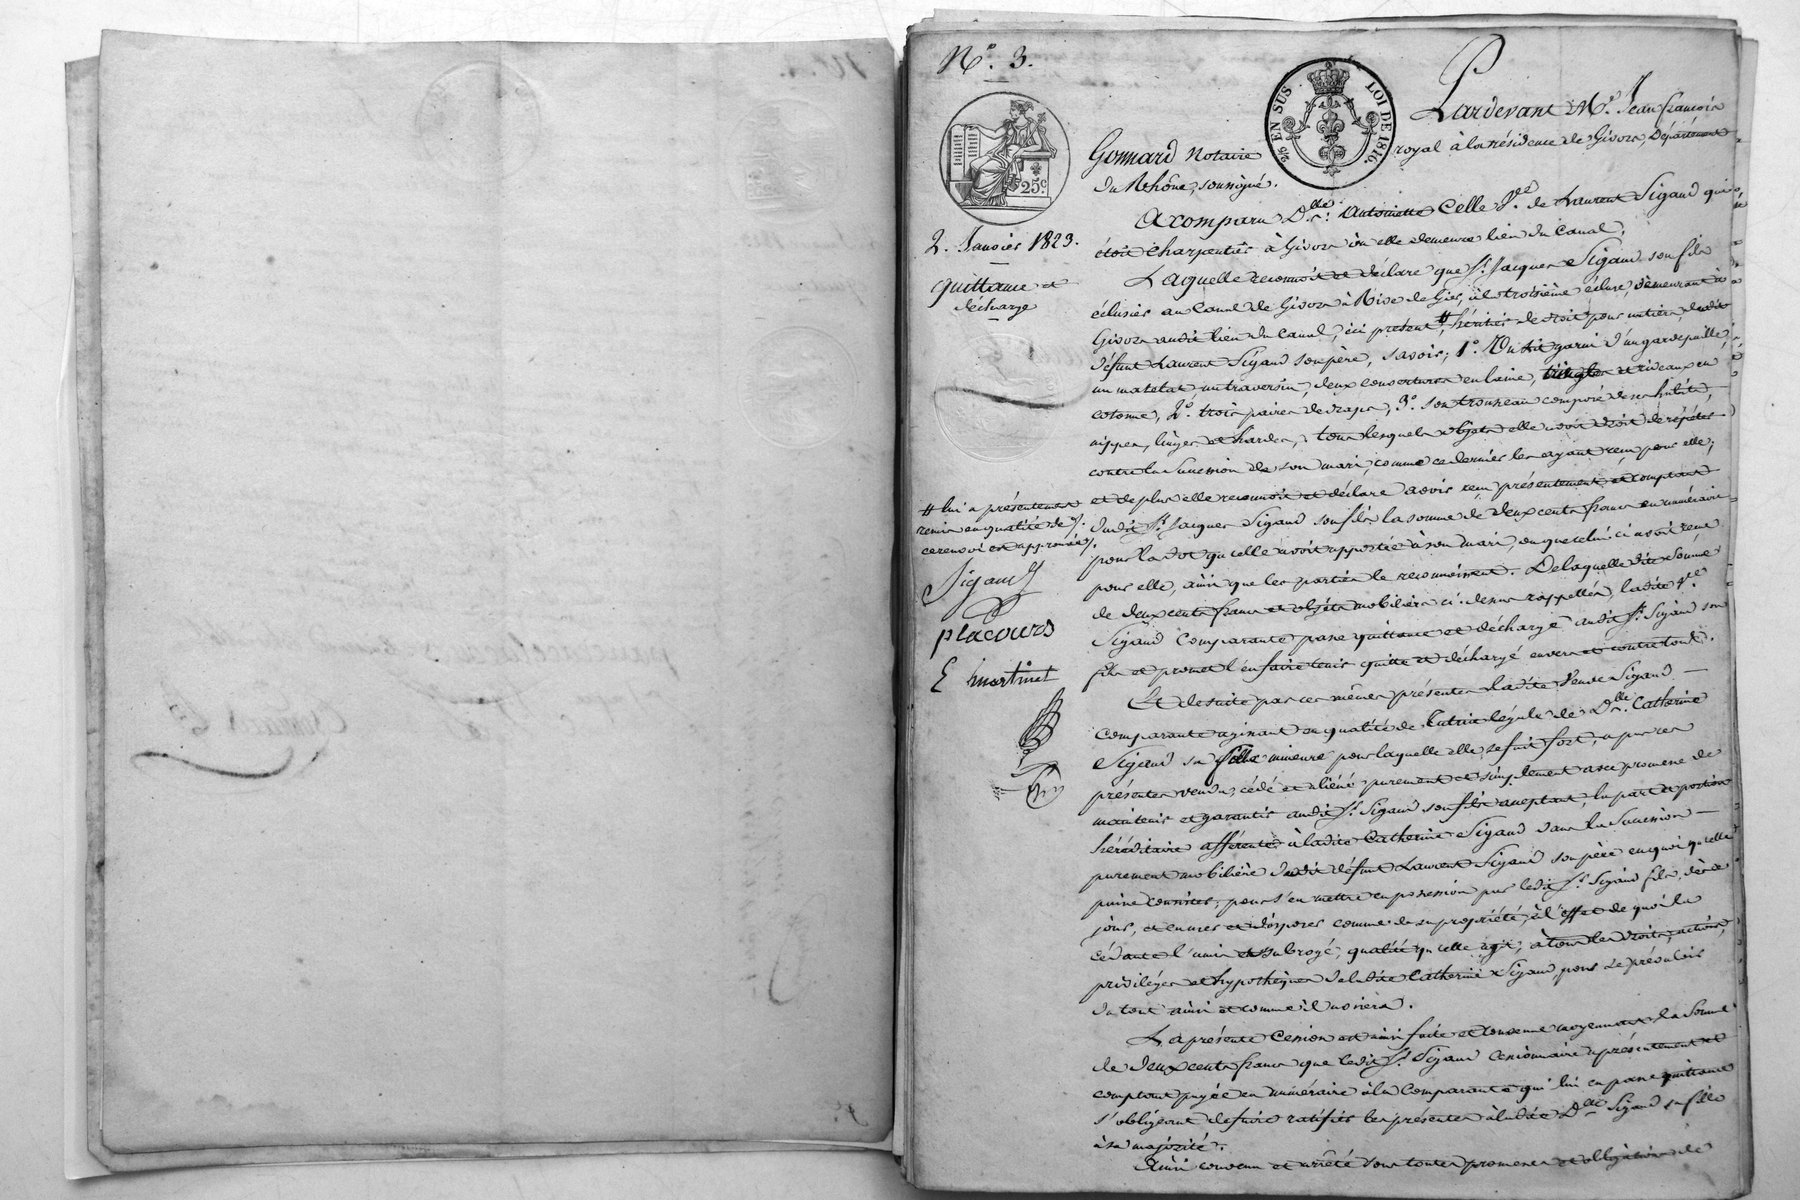 N.º 3.
2/5 EN SUS LOI DE 1816.
25.c
2. Janvier 1823.
quittance et
décharge
Pardevant M.e Jean françois
Gonnard Notaire royal à la résidence de Givors, Département
du Rhône, soussigné.
A comparu D.lle Antoinette Celle V.e de Laurent Sigaud qui
étoit charpentier à Givors où elle demeure lieu du Canal,
Laquelle reconnoit et déclare que S.r Jacques Sigaud son fils
éclusier au Canal de Givors à Rive de Gier, à la troisième écluse, demeurant à
Givors audit lieu du Canal, ici présent, # héritier de droit pour un tiers dudit
défunt Laurent Sigaud son père, savoir; 1.º Un lit garni d'un gardepaille,
un matelat, un traversin, deux couvertures en laine, tringles et rideaux en
cotonne, 2.º trois paires de draps, 3.º son trousseau composé de ses habits,
nippes, linges et hardes, tous lesquels objets elle avoit droit de répéter
contre la succession de son mari, comme ce dernier les ayant reçu pour elle;
et de plus elle reconnoit et déclare avoir reçu présentement et comptant
dudit S.r Jacques Sigaud son fils la somme de deux cents francs en numéraire
pour la dot qu'elle avoit apportée à son mari, ou que celui ci avoit reçue
pour elle, ainsi que les parties le reconnoissent. De laquelle dite somme
de deux cents francs et objets mobiliers ci-dessus rappellés, ladite V.ve
Sigaud comparante passe quittance et décharge audit S.r Sigaud son
fils et promet l'en faire tenir quitte et déchargé envers et contre tout.
# lui a présentement
remis en qualité d'
ce renvoi est approuvé
Sigaud
placours
E martinet
Et de suite par ces mêmes présentes ladite veuve Sigaud
comparante agissant en qualité de tutrice légale de D.lle Catherine
Sigaud sa fille mineure pour laquelle elle se fait fort, a par ces
présentes vendu, cédé et aliéné purement et simplement avec promesse de
maintenir et garantir audit S.r Sigaud son fils acceptant, la part et portion
héréditaire afférente à ladite Catherine Sigaud dans la succession
purement mobilière dudit défunt Laurent Sigaud son père en quoi qu'elle
puisse consister, pour s'en mettre en possession par ledit S.r Sigaud fils, dès ce
jour, et en user et disposer comme de sa propriété, à l'effet de quoi la
cédante l'a mis et subrogé, qualité qu'elle agit, à tous les droits, actions,
privilèges et hypothèques de ladite Catherine Sigaud, pour se prévaloir
du tout ainsi et comme il avisera.
La présente Cession est ainsi faite et consenue moyennant la somme
de deux cents francs que ledit S.r Sigaud Cessionnaire a présentement et
comptant payée en numéraire à la Comparante qui lui en passe quittance
s'obligeant de faire ratifier les présentes à ladite D.lle Sigaud sa fille
à sa majorité.
Ainsi convenu et arrêté sous toutes promesses et obligations de